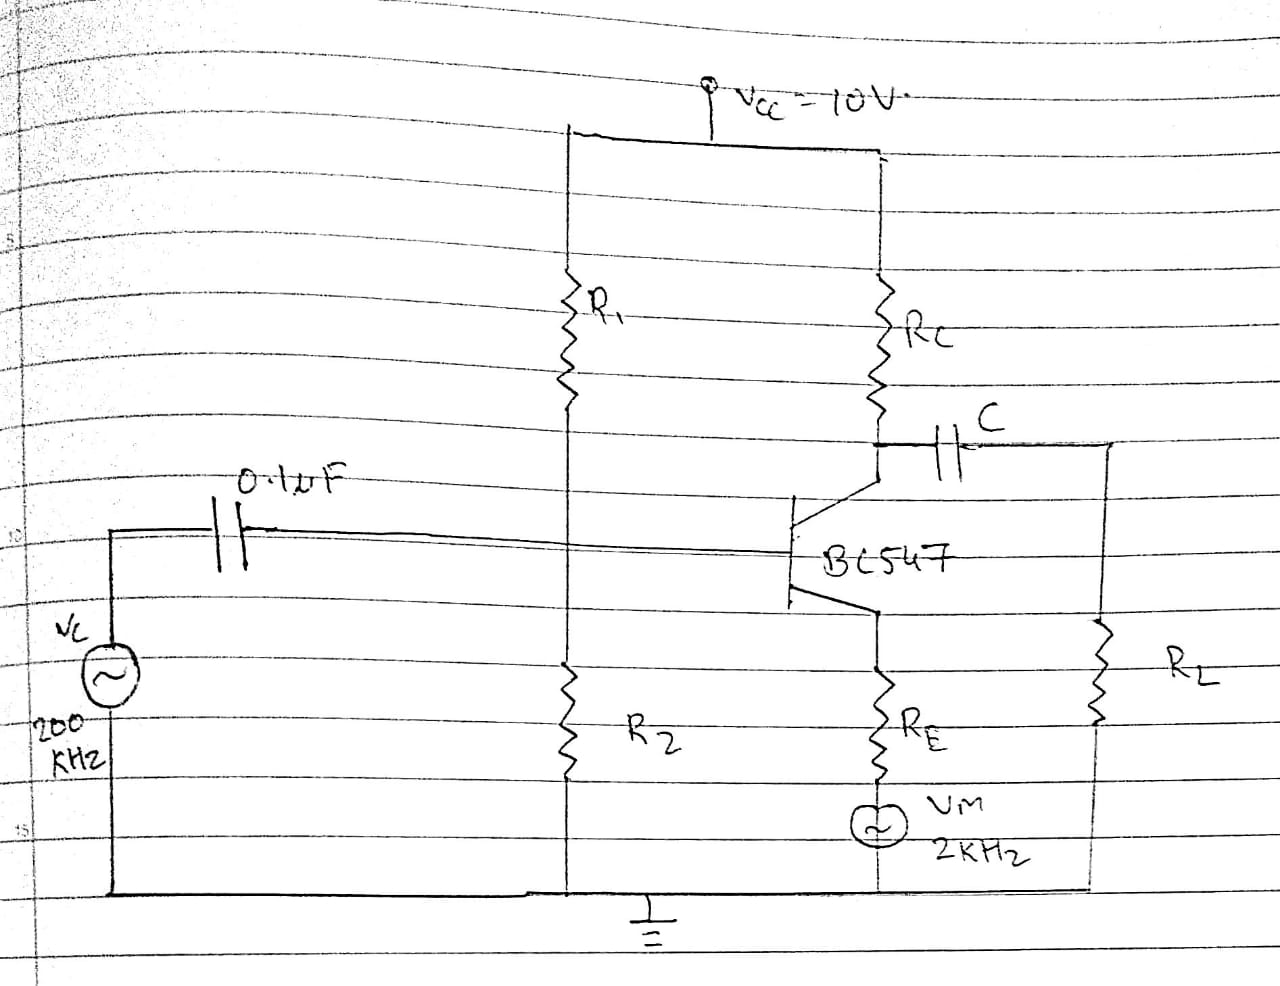 VCC = 10V.
R1
RC
C
0.1uF
BC547
VC
200
KHz
R2
RE
RL
VM
2KHz
5
10
15